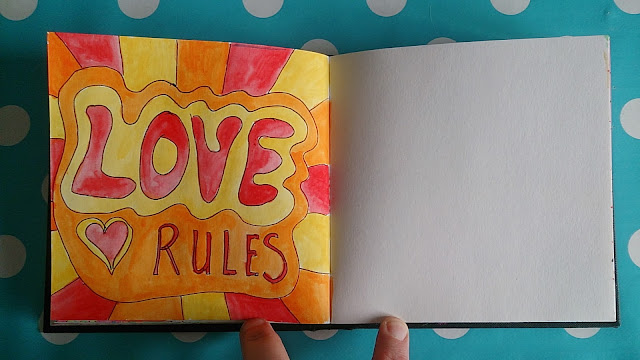 LOVE
RULES